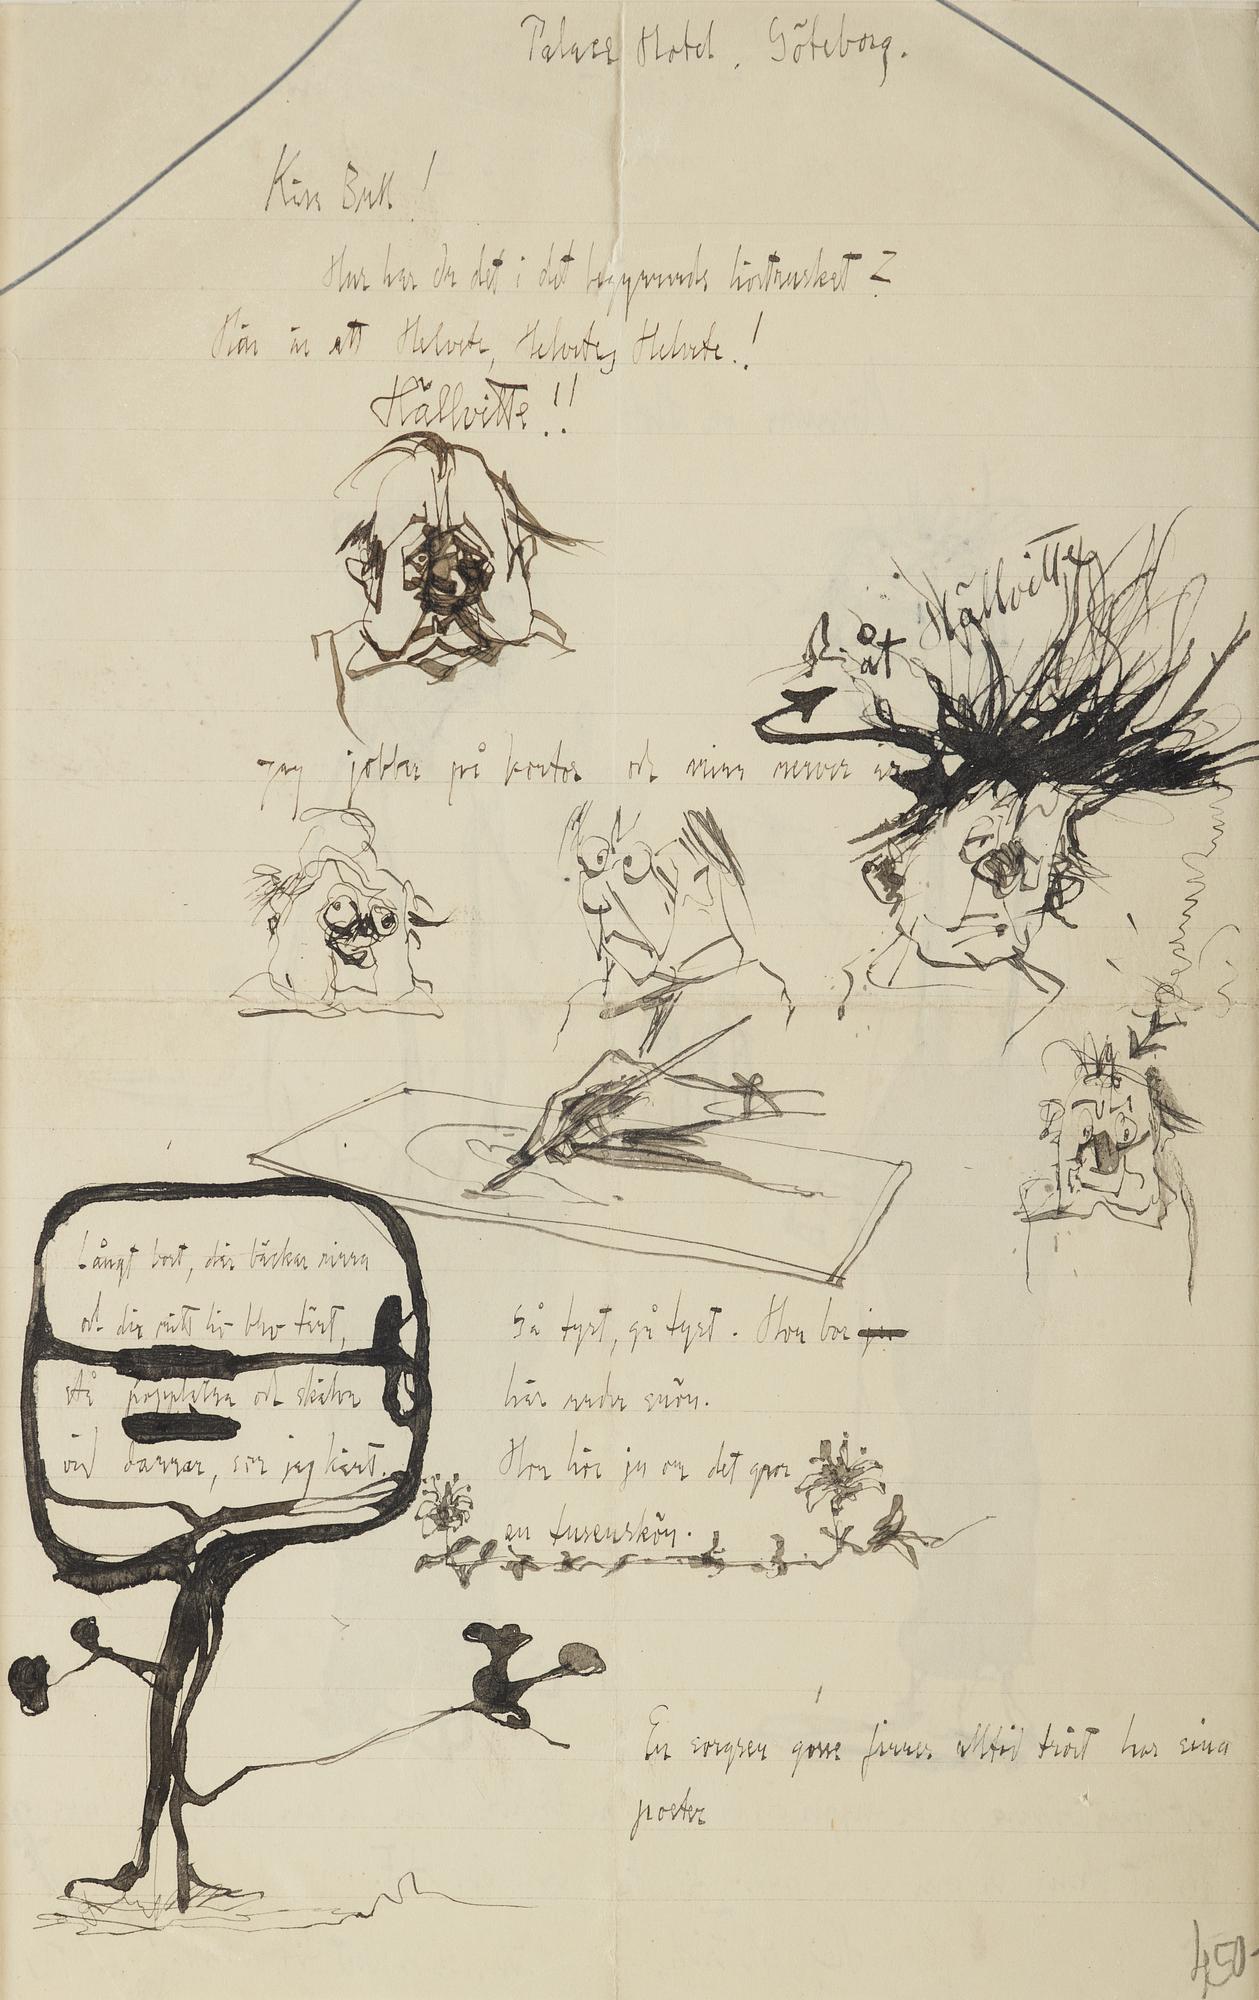 Palace Hotel. Göteborg.
Kära Bull!
Hur har du det i det begynnande hösttrusket?
Här är ett Helvete, Helvete, Helvete.!
Hällvitte!!
åt Hällvitte
Jag jobbar på kontor och mina nerver är
Långt bort, där bäckar rinna
och där mitt liv blev tärt,
stå popplarna och skälva
vid dammar, som jag kärt.
Gå tyst, gå tyst. Hon bor
här under snön.
Hon hör ju om det gror
en tusenskön.
En sorgsen gosse finner alltid tröst hos sina
poeter
450-